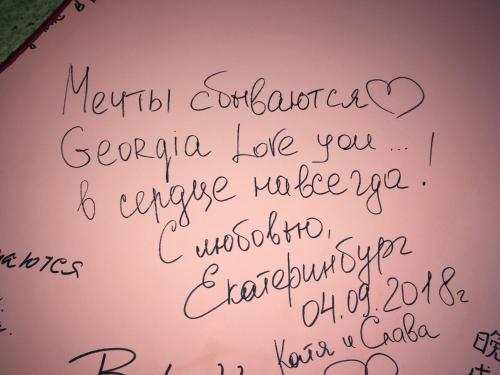 Мечты сбываются♡
Georgia Love you...
в сердце навсегда!
С любовью,
Екатеринбург
04.09.2018г
Катя и Слава
аются
晩